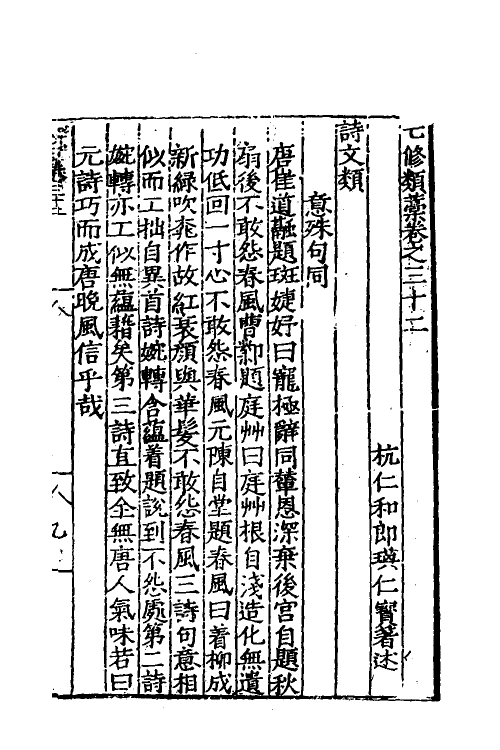 七修類藁卷之三十二
杭仁和郎瑛仁寶著述
詩文類
意殊句同
唐崔道融題班婕妤曰寵極辭同輦恩深棄後宮自題秋
扇後不敢怨春風曹鄴題庭艸曰庭艸根自淺造化無遺
功低回一寸心不敢怨春風元陳自堂題春風曰着柳成
新綠吹桃作故紅衰顏與華髮不敢怨春風三詩句意相
似而工拙自異首詩婉轉含蘊着題說到不怨處第二詩
婉轉亦工似無蘊藉矣第三詩直致全無唐人氣味若曰
元詩巧而成唐晚風信乎哉